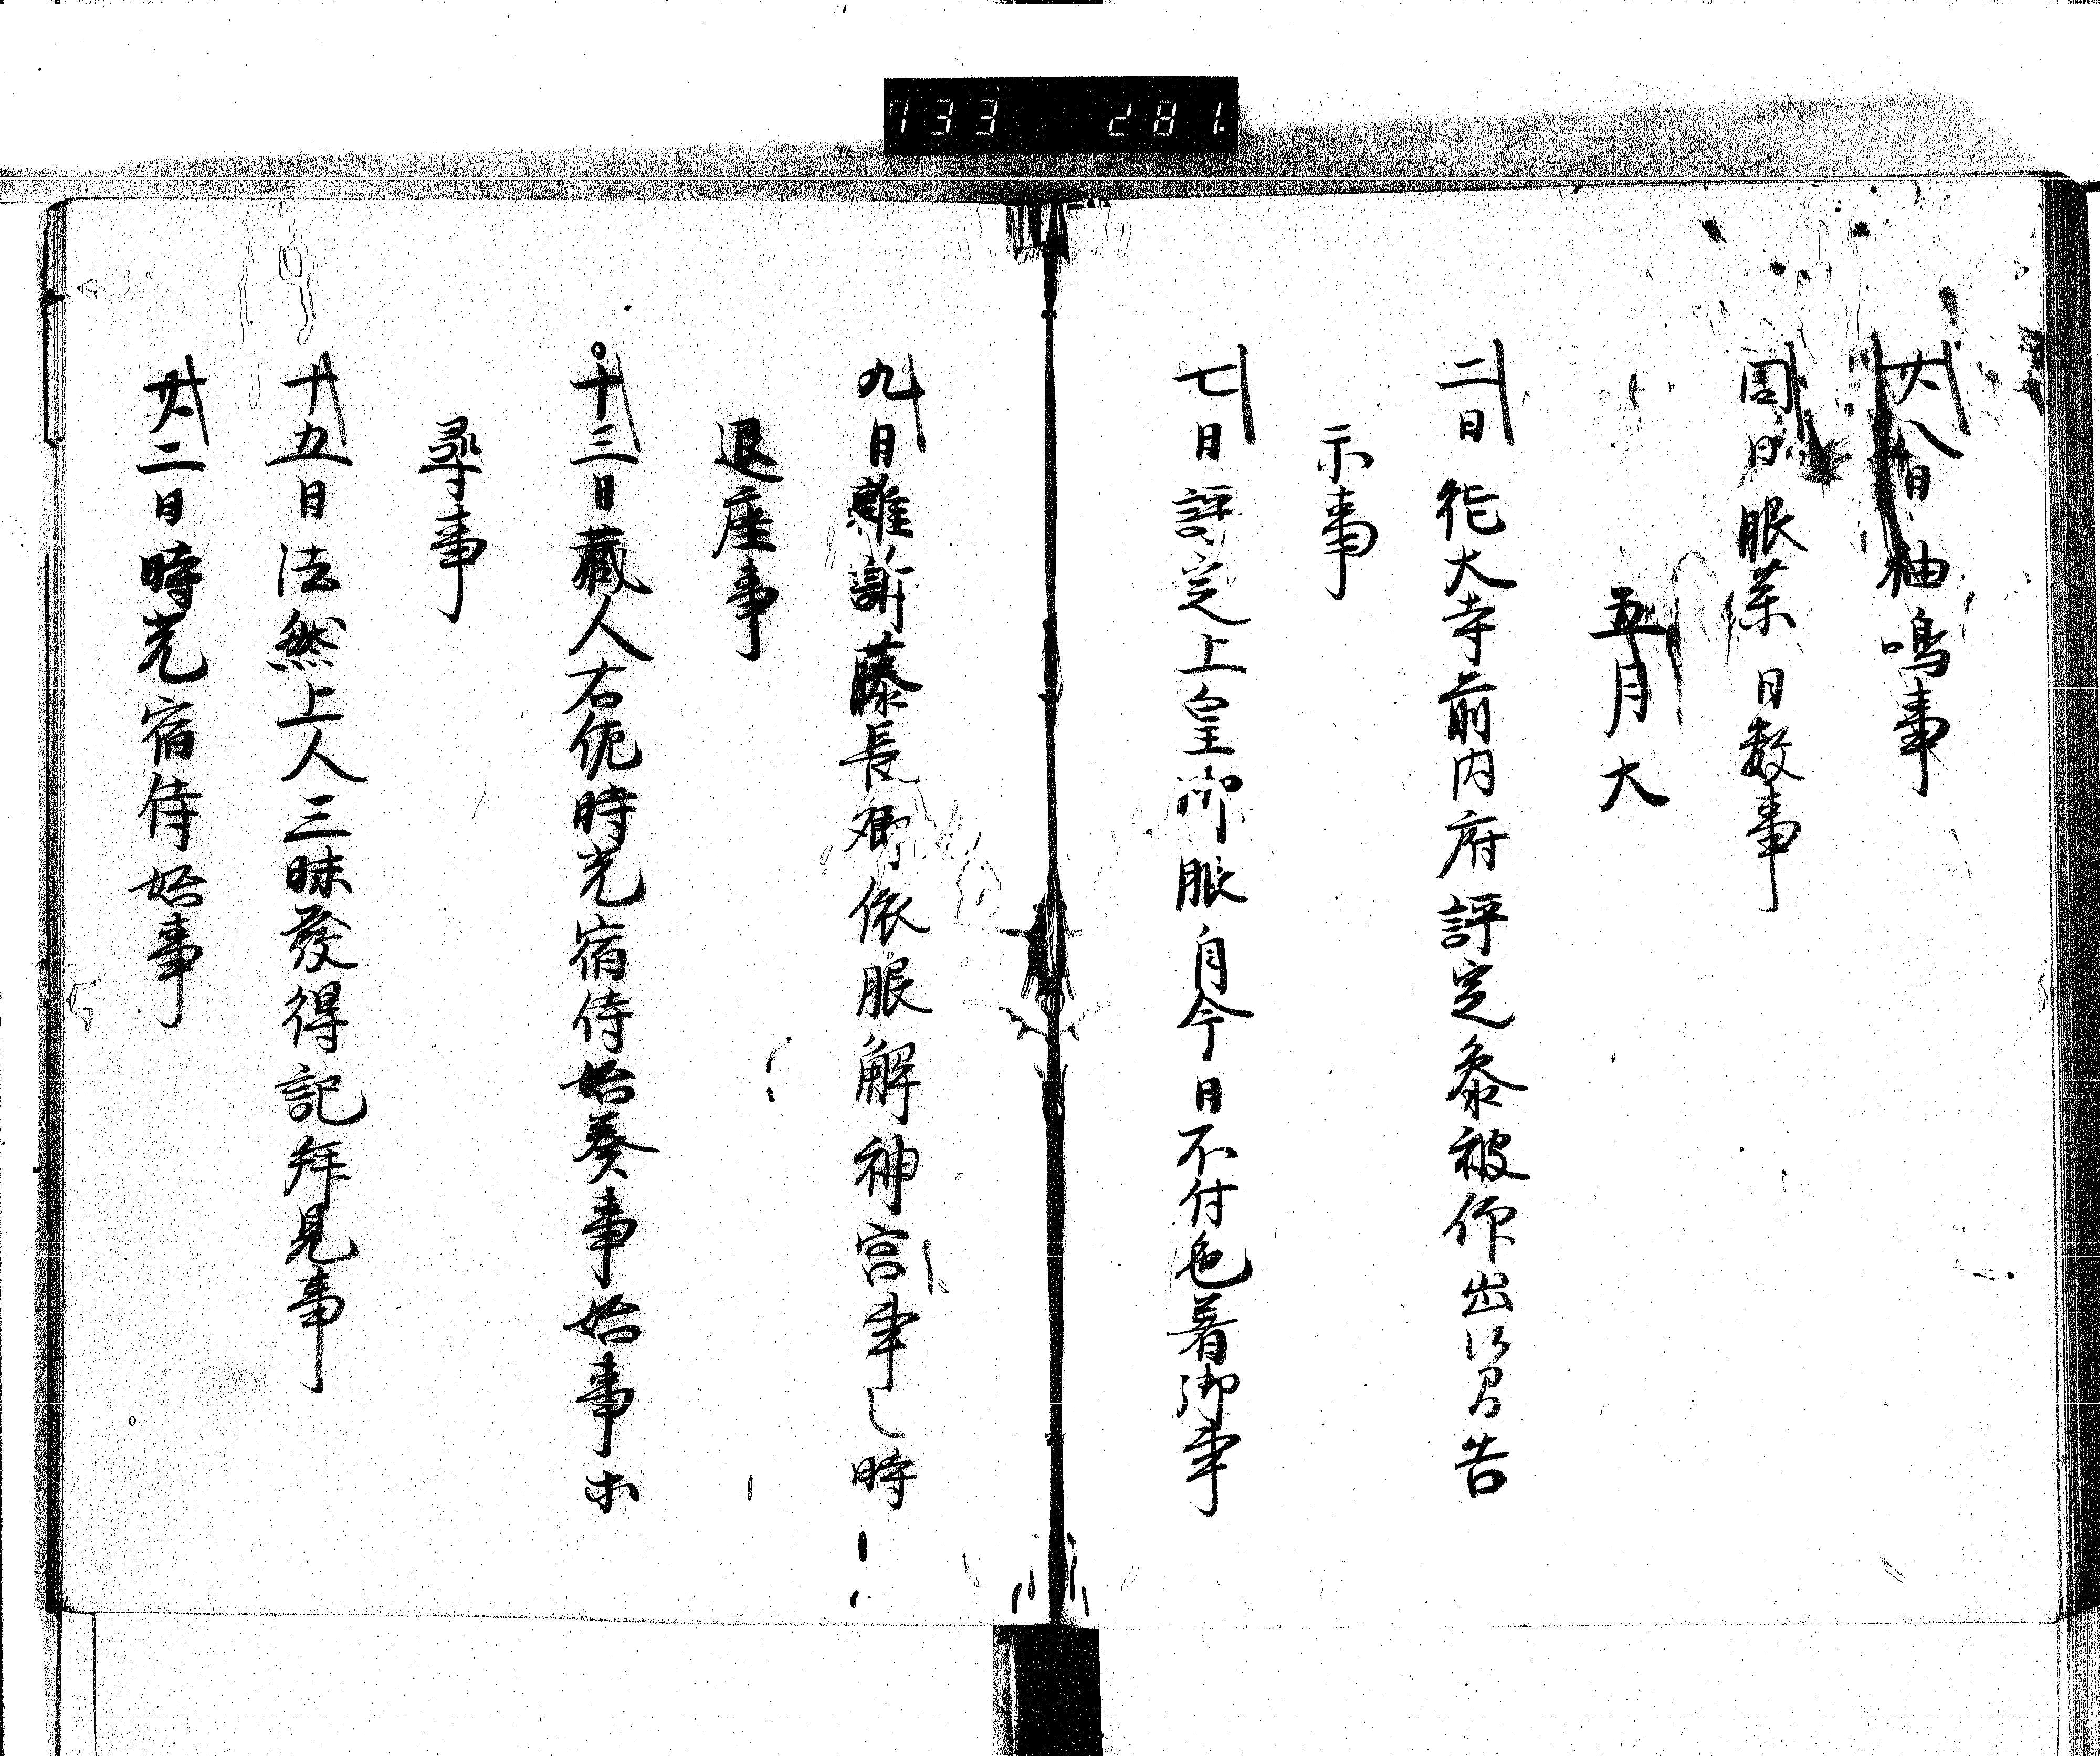 733 281
廿八日柚鳴事
同日服薬日数事
五月大
二日徳大寺前内府評定参被仰出以宮告
示事
七日評定上皇御服自今日不付色着御事
九日雑訴藤長卿依服解神宮事之時
退座事
十三日蔵人右佐時光宿侍始奏事始事等
尋事
十五日法然上人三昧發得記拜見事
廿二日時光宿侍始事